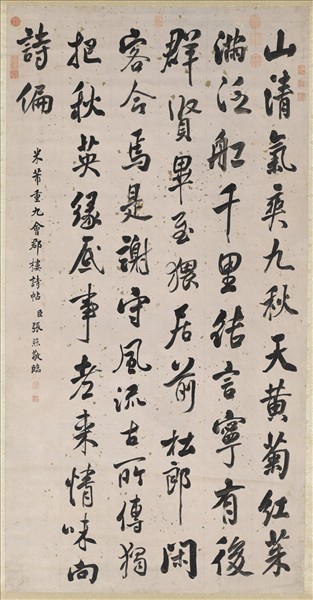 山清氣爽九秋天黃菊紅茱
滿泛舡千里結言寧有後
群賢畢至猥居前杜郎閑
客今焉是謝守風流古所傳獨
把秋英緣底事老來情味向
詩偏
米芾重九會郡樓詩帖 臣張照敬臨